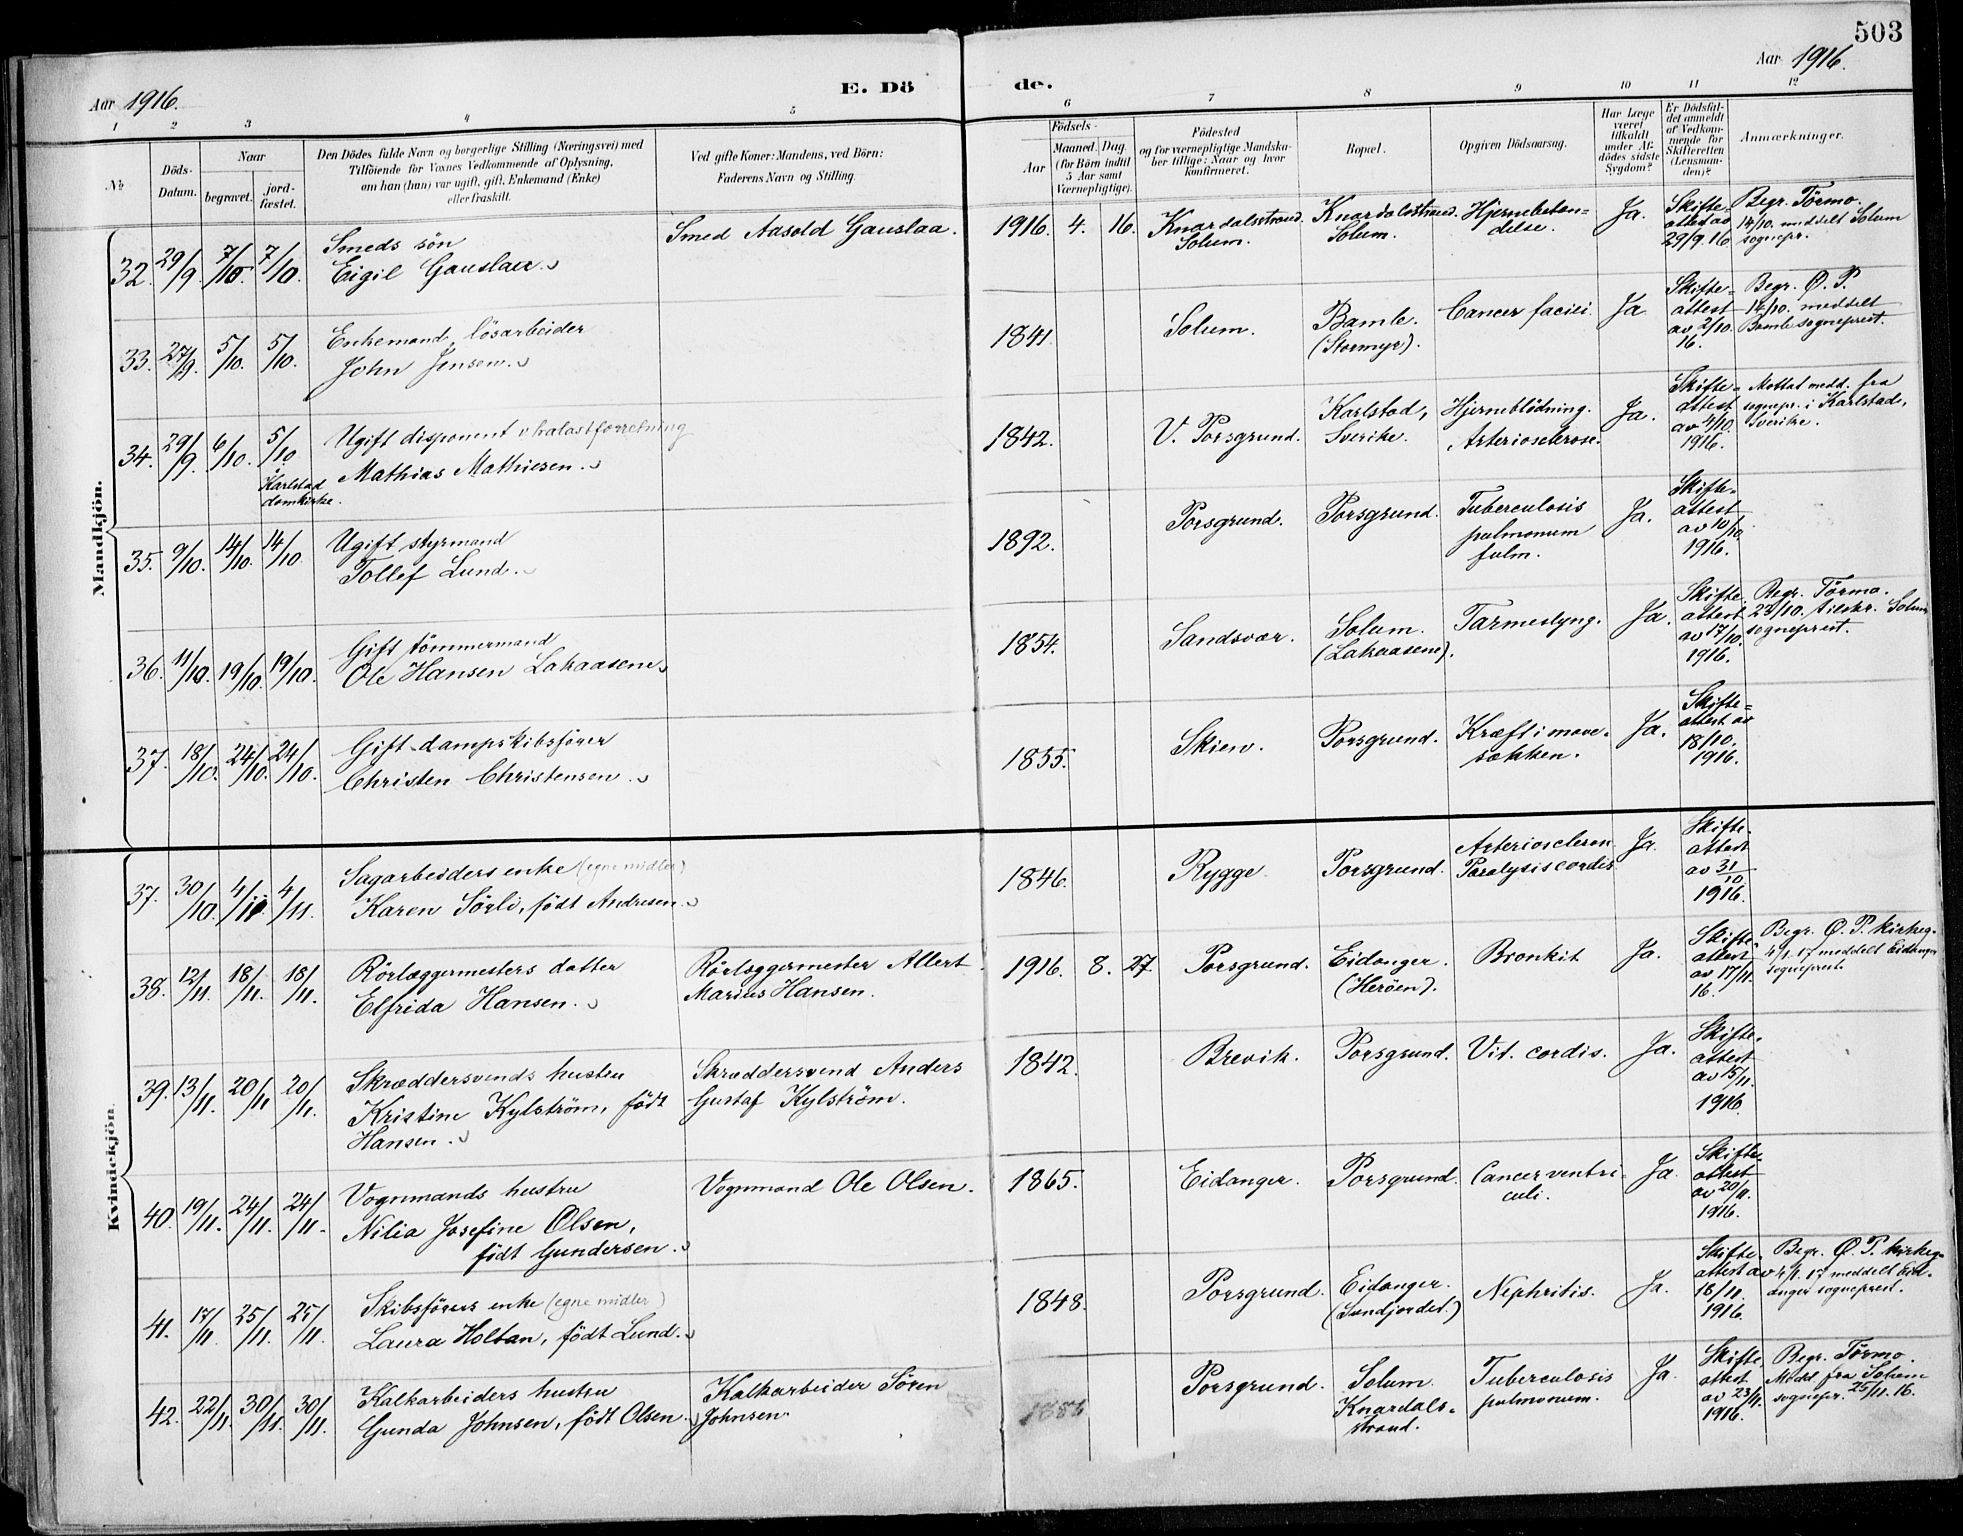 503
Aar 1916.
E. Dö de.
Aar 1916.
1 2 3 4 5 6 7 8 9 10 11 12
№
Döds-
Datum.
Naar
begravet.
jord-
fæstet.
Den Dödes fulde Navn og borgerlige Stilling (Næringsvei) med
Tilföiende for Voxnes Vedkommende af Oplysning,
om han (hun) var ugift, gift, Enkemand (Enke)
eller fraskilt.
Ved gifte Koner: Mandens, ved Börn:
Faderens Navn og Stilling.
Födsels-
Aar
Maaned. Dag.
(for Börn indtil
5 Aar samt
Værnepligtige).
Födested
og for værnepligtige Mandska-
ber tillige: Naar og hvor
konfirmeret.
Bopæl.
Opgiven Dödsaarsag.
Har Læge
været
tilkaldt
under Af-
dödes sidste
Sygdom?
Er Dödsfal-
det anmeldt
af Vedkom-
mende for
Skifteretten
(Lensman-
den)?
Anmærkninger.
Mandkjön.
32. 29/9. 7/10. 7/10.
Smeds sön
Eigil Gauslaa.
Smed Aasold Gauslaa.
1916. 4. 16.
Knardalsstrand.
Solum.
Knardalsstrand.
Solum.
Hjernebeten=
delse.
Ja.
Skifte
attest av
29/9.16
Begr. Törmo.
14/10. meddelt Solum
sognepr.
33. 27/9. 5/10. 5/10.
Enkemand, lösarbeider
John Jensen.
1841.
Solum.
Bamle.
(Stormyr).
Cancer faciei.
Ja
Skifte=
attest
av 2/10.
16.
Begr. Ø. P.
14/10. meddelt
Bamle sogneprest.
34. 29/9. 6/10. 5/10
Karlstad
domkirke.
Ugift disponent
Mathias Mathiesen.
1842.
V. Porsgrund.
Karlstad,
Sverike.
Hjerneblödning.
Arteriosclerose.
Ja.
Skifte=
attest
av 4/10.
1916.
Mottat medd. fra
sognepr. i Karlstad,
Sverike.
35. 9/10. 14/10. 14/10
Ugift styrmand
Tollef Lund.
1892.
Porsgrund.
Porsgrund.
Tuberculosis
pulmonum
fulm.
Ja.
Skifte=
attest
av 10/10
1916.
36. 11/10. 19/10. 19/10.
Gift tömmermand
Ole Hansen Lakaasene.
1854.
Sandsvær.
Solum.
(Lakaasene).
Tarmeslyng.
Ja.
Skifte
attest
av 17/10.
1916.
Begr. Törmo.
23/10. tilskr. Solum
sogneprest.
37. 18/10. 24/10. 24/10.
Gift dampskibsförer
Christen Christensen.
1855.
Skien.
Porsgrund.
Kræft i mave-
sækken.
Ja.
Skifte=
attest av
18/10.
1916.
Kvindekjön.
37. 30/10. 4/11. 4/11.
Sagarbeiders enke (egne midler)
Karen Sörli, födt Andresen.
1846.
Rygge.
Porsgrund.
Arteriosclerose
Paralysis cordis
Ja.
Skifte-
attest
av 31/10
1916.
38. 12/11. 18/11. 18/11.
Rörlæggermesters datter
Elfrida Hansen.
Rörlæggermester Albert
Marius Hansen.
1916. 8. 27.
Porsgrund.
Eidanger.
(Heröen).
Bronkit
Ja.
Skifte
attest
av 17/11.
16.
Begr. Ø. P. kirkeg.
4/1.17 meddelt Eidanger
sogneprest.
39. 13/11. 20/11 20/11.
Skræddersvends hustru
Kristine Kylström, födt
Hansen.
Skræddersvend Anders
Gustaf Kylström.
1842.
Brevik.
Porsgrund.
Vit. cordis.
Ja.
Skifte-
attest
av 15/11.
1916.
40. 19/11. 24/11. 24/11.
Vognmands hustru
Nilia Josefine Olsen,
födt Gundersen.
Vognmand Ole Olsen.
1865.
Eidanger.
Porsgrund.
Cancer ventri-
culi.
Ja.
Skifte-
attest
av 20/11.
1916.
41. 17/11 25/11. 25/11.
Skibsförers enke (egne midler)
Laura Holtan, födt Lund.
1848.
Porsgrund.
Eidanger.
(Sundjordet.)
Nephritis.
Ja.
Skifte-
attest av
18/11.
1916.
Begr. Ø. P. kirkeg.
4/1.17 meddelt Eid-
anger sogneprest.
42. 22/11. 30/11. 30/11.
Kalkarbeiders hustru
Gunda Johnsen, födt Olsen.
Kalkarbeider Sören
Johnsen.
Porsgrund.
Solum.
Knardals-
strand.
Tuberculosis
pulmonum.
Ja.
Skifte
attest
av 23/11.
1916.
Begr. Törmo.
Medd. fra Solum
sognepr. 25/11.16.